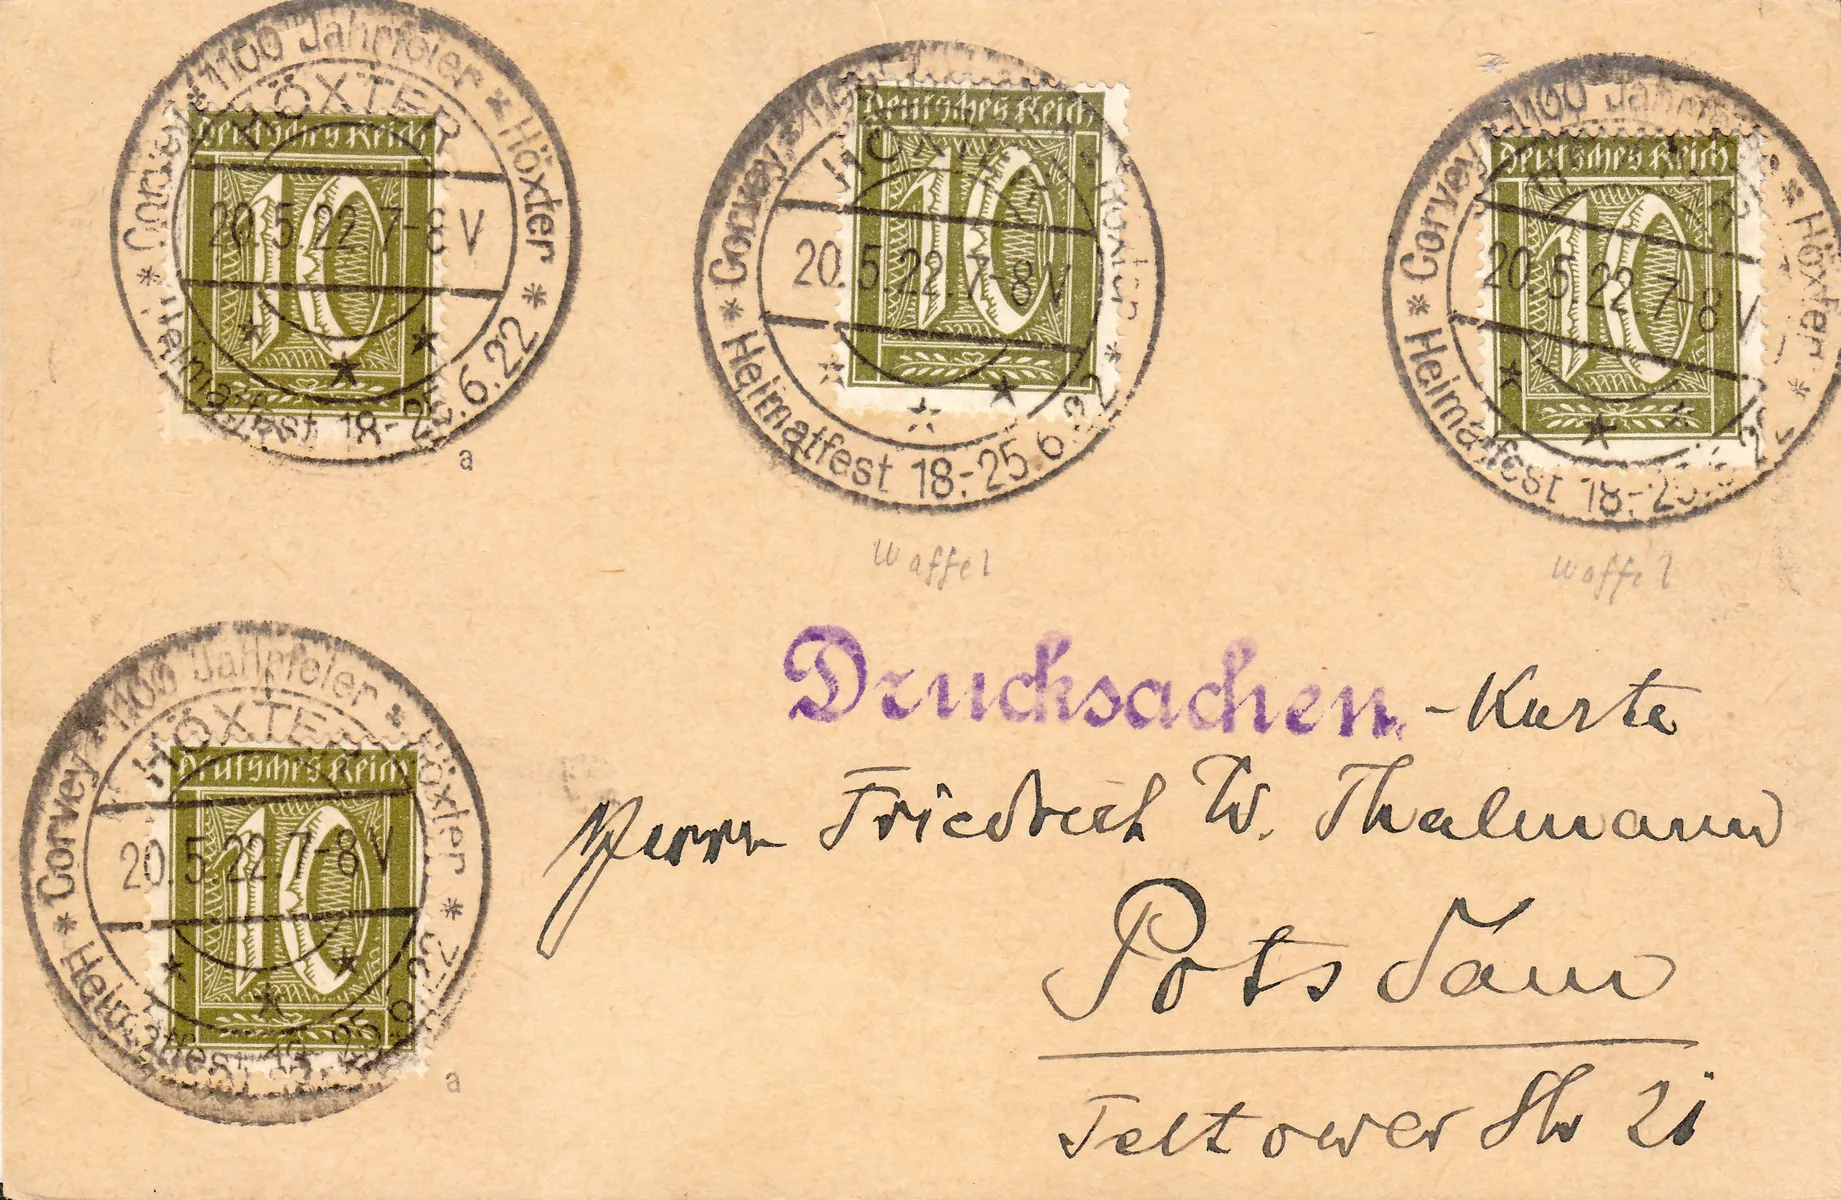 Corvey * 1100 Jahrfeier * Höxter * Heimatfest 18.-25.6.22 *
HÖXTER
20.5.22.7-8V
Deutsches Reich
10
a
Corvey * 1100 Höxter * Heimatfest 18.-25.6.22 *
HÖXTER
20.5.22.7-8V
Deutsches Reich
10
Waffel
Corvey * 1100 Jahrfeier * Höxter * Heimatfest 18.-25.
HÖXTER
20.5.22.7-8V
Deutsches Reich
10
Waffel
Corvey * 1100 Jahrfeier * Höxter * Heimatfest 18.-25.6.
HÖXTER
20.5.22.7-8V
Deutsches Reich
10
a
Drucksachen. - Karte
Herrn Friedrich W. Thalmann
Potsdam
Teltower Str 21